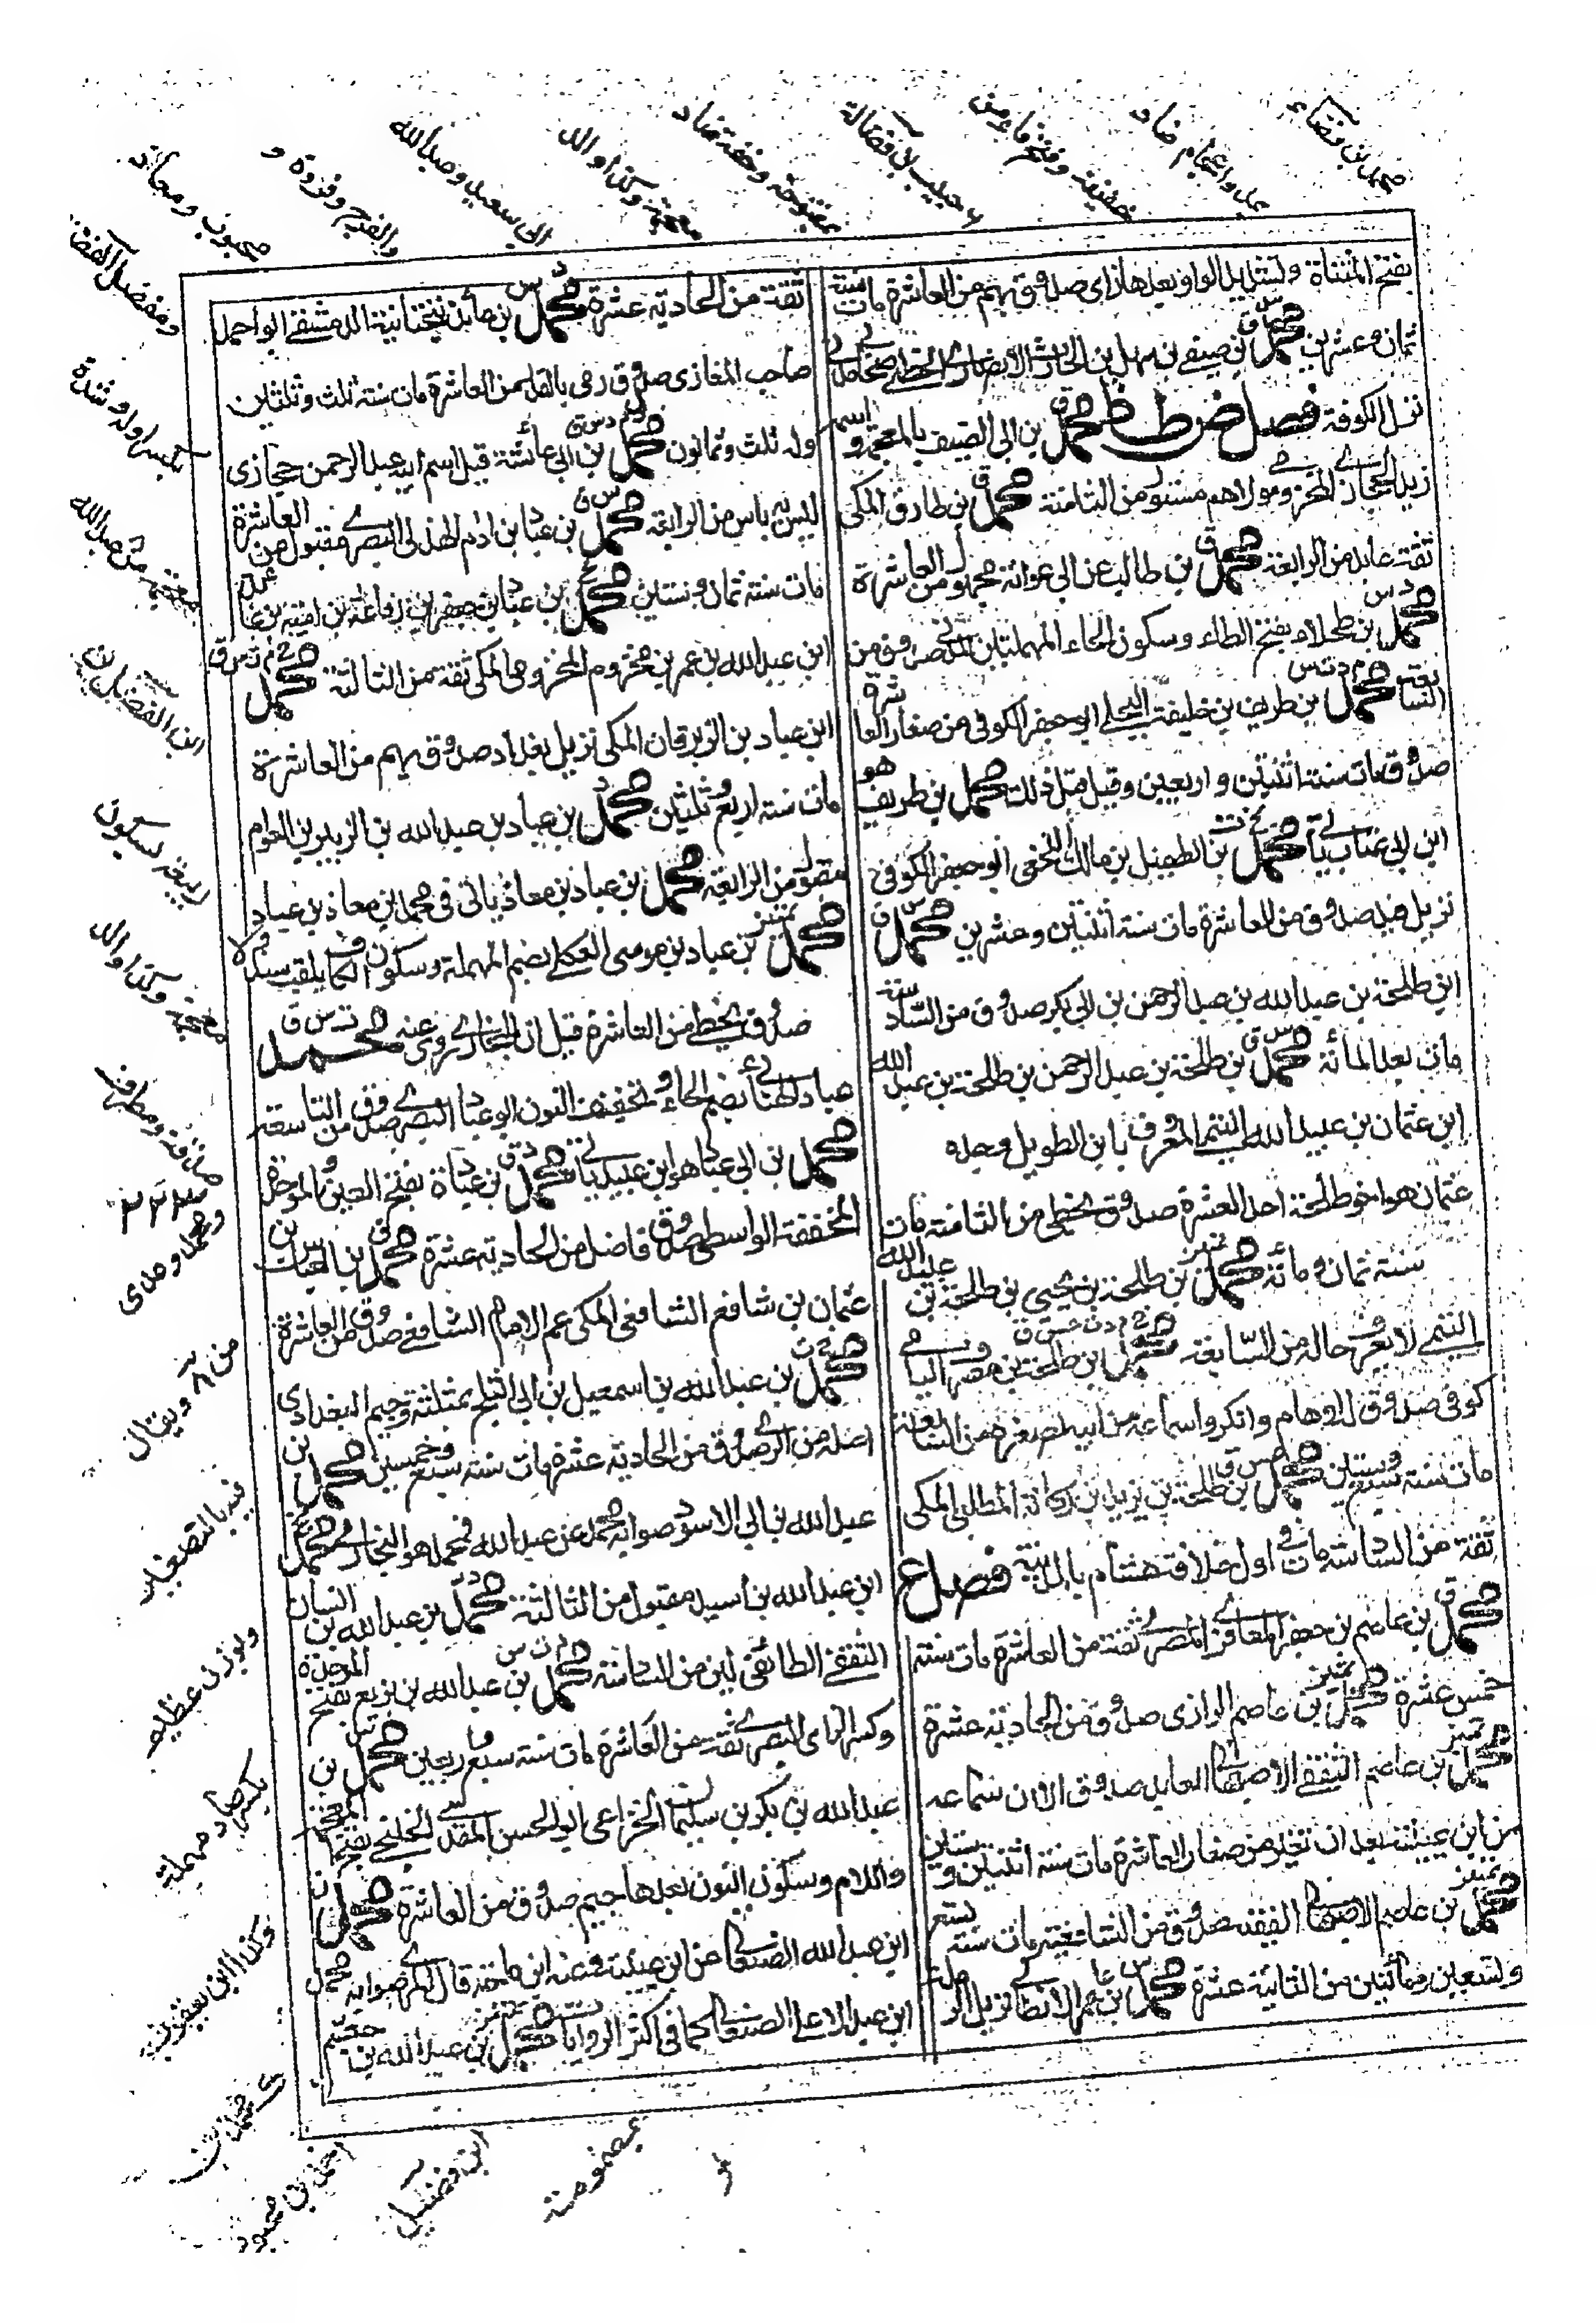 بفتح المثناة وتشديد الواو بعدها زاى صدوق يهم من العاشرة مات سنة
ثمان وعشرين محمد بن صيفي بن سهل بن الحارث الانصاري الخطمي صحابي
نزل الكوفة فصل ض ط ظ محمد بن ابى الضيف بالمعجمة و اسمه
زيد الحجازي المخزومي مولاهم مستور من الثامنة محمد بن طارق المكى
ثقة عابد من الرابعة محمد بن طالب عن ابى عوانة مجهول من العاشرة
محمد بن طحلاء بفتح الطاء وسكون الحاء المهملتين المدني صدوق من
السابعة محمد بن طريف بن خليفة البجلي ابو جعفر الكوفى من صغار العاشرة
صدوق مات سنة اثنتين واربعين وقيل قبل ذلك محمد بن طريف هو
ابن ابى عتاب يأتي محمد بن الطفيل بن مالك النخعى ابو جعفر الكوفى
نزيل فيد صدوق من العاشرة مات سنة اثنتين وعشرين محمد
ابن طلحة بن عبد الله بن عبد الرحمن بن ابى بكر صدوق من السادسة
مات بعد المائة محمد بن طلحة بن عبد الرحمن بن طلحة بن عبد الله
ابن عثمان بن عبيد الله التيمي المعروف بابن الطويل وجده
عثمان هو اخو طلحة احد العشرة صدوق يخطى من الثامنة مات
سنة ثمان ومائة محمد بن طلحة بن يحيى بن طلحة بن عبيد الله
التيمي لا يعرف حاله من السابعة محمد بن طلحة بن مصرف اليامي
كوفى صدوق له اوهام وانكروا سماعه من ابيه لصغره من السابعة
مات سنة سبع وستين محمد بن طلحة بن يزيد بن ركانة المطلبى المكى
ثقة من السادسة مات في اول خلافة هشام بالمدينة فصل ع
محمد بن عاصم بن جعفر المعافري المصري ثقة من العاشرة مات سنة
خمس عشرة محمد بن عاصم الرازى صدوق من الحادية عشرة
محمد بن عاصم الثقفي الاصبهاني العابد صدوق الا ان سماعه
من ابن عيينة بعد ان تغير من صغار العاشرة مات سنة اثنتين وستين
محمد بن عاصم الاصبهاني الفقيه صدوق من التاسعة مات سنة تسع
وتسعين ومائتين من الثانية عشرة محمد بن عامر الانطاكي نزيل الرملة
ثقة من الحادية عشرة محمد بن عائذ بتحتانية الدمشقي ابو احمد
صاحب المغازى صدوق رمى بالقدر من العاشرة مات سنة ثلث وثلثين
وله ثلث وثمانون محمد بن ابى عائشة قيل اسم ابيه عبد الرحمن حجازى
ليس به باس من الرابعة محمد بن عباد بن ادم الهذلى البصري مقبول من العاشرة
مات سنة ثمان وستين محمد بن عباد بن جعفر بن رفاعة بن امية بن عابد
ابن عبد الله بن عمر بن مخزوم المخزومى المكى ثقة من الثالثة محمد
ابن عباد بن الزبرقان المكى نزيل بغداد صدوق يهم من العاشرة
مات سنة اربع وثلثين محمد بن عباد بن عبد الله بن الزبير بن العوام
مقبول من الرابعة محمد بن عباد بن معاذ ياتى فى محمد بن معاذ بن عباد
محمد بن عباد بن موسى العكلي بضم المهملة وسكون الكاف يلقب سندولا
صدوق يخطي من العاشرة قيل ان البخاري روى عنه محمد
عباد الهنائي بضم الهاء وتخفيف النون ابو عباد البصري صدوق من التاسعة
محمد بن ابى عباد هو ابن عبيد يأتي محمد بن عبادة بفتح العين والموحدة
المخففة الواسطي صدوق فاضل من الحادية عشرة محمد بن العباس بن
عثمان بن شافع الشافعى المكى عم الامام الشافعي صدوق من العاشرة
محمد بن عبد الله بن اسمعيل بن ابى الثلج بمثلثة وجيم البغدادى
اصله من الري صدوق من الحادية عشرة مات سنة سبع وخمسين محمد بن
عبد الله بن ابى الاسود صوابه محمد عن عبد الله فمحمد هو البخاري محمد
ابن عبد الله بن اسيد مقبول من الثالثة محمد بن عبد الله بن انسان
الثقفي الطائفى لين من السادسة محمد بن عبد الله بن بزيع بفتح الموحدة
وكسر الزاى البصري ثقة من العاشرة مات سنة سبع واربعين محمد بن
عبد الله بن بكر بن سليمان الخزاعى ابو الحسن المقدسي الخلنجي بفتح المعجمة
واللام وسكون النون بعدها جيم صدوق من العاشرة محمد
ابن عبد الله الصنعاني عن ابن عيينة وعنه ابن ماجة قال المزي صوابه محمد
ابن عبد الاعلى الصنعاني كما فى اكثر الروايات محمد بن عبد الله بن جعثم
محمد بن فضاء
وحبيب بن فضالة
مفتوحة وخفة ضاد
معجمة وكذا والد
ابى سعيد وعبد الله
والفرج وفروة و
محبوب ومعاذ
بكسر اوله وشدة
معجمة بن عبد الله
اربعة بسكون
معجمة وكذا والد
من ... ويقال
بالتصغير
وبوزن عظيم
بكسر صاد مهملة
وكذا ابن يعقوب
احمد بن محبوب
ابن فضيل
مضمومة